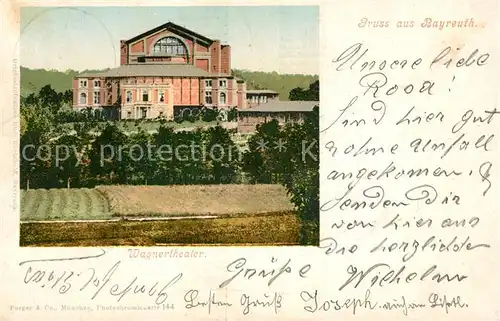 Gruss aus Bayreuth.
Unsere liebe
Rosa!
Sind hier gut
ohne Unfall
angekommen.
Senden Dir
von hier aus
die herzlichste
Grüße Wilhelm
Besten Gruß Joseph.
Wagnertheater.
copyright for sale
Purger & Co., München, Photochromiekarte 144